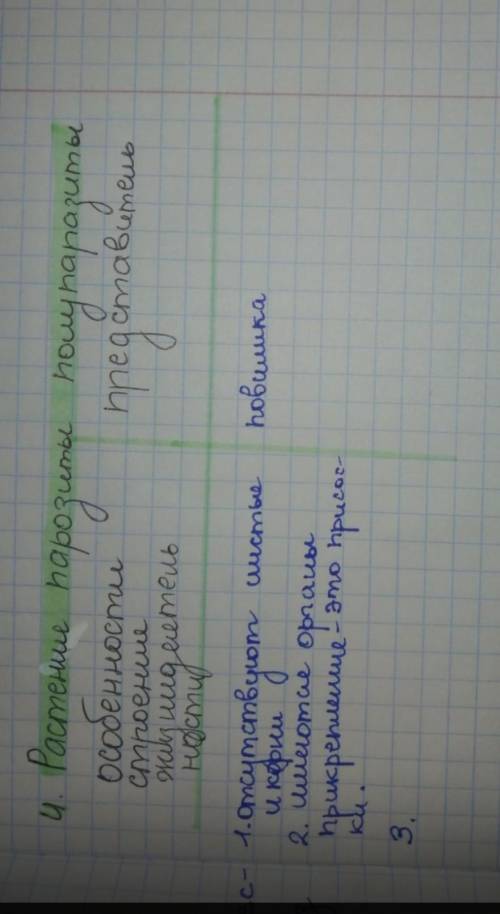 4. Растение парозиты полупаразиты
особенности
строение
жизнидеятель
ность
представитель
с-
1. отсутствуют листье
и корни
повилика
2. имеютие органы
прикрепление - это присос-
ки.
3.